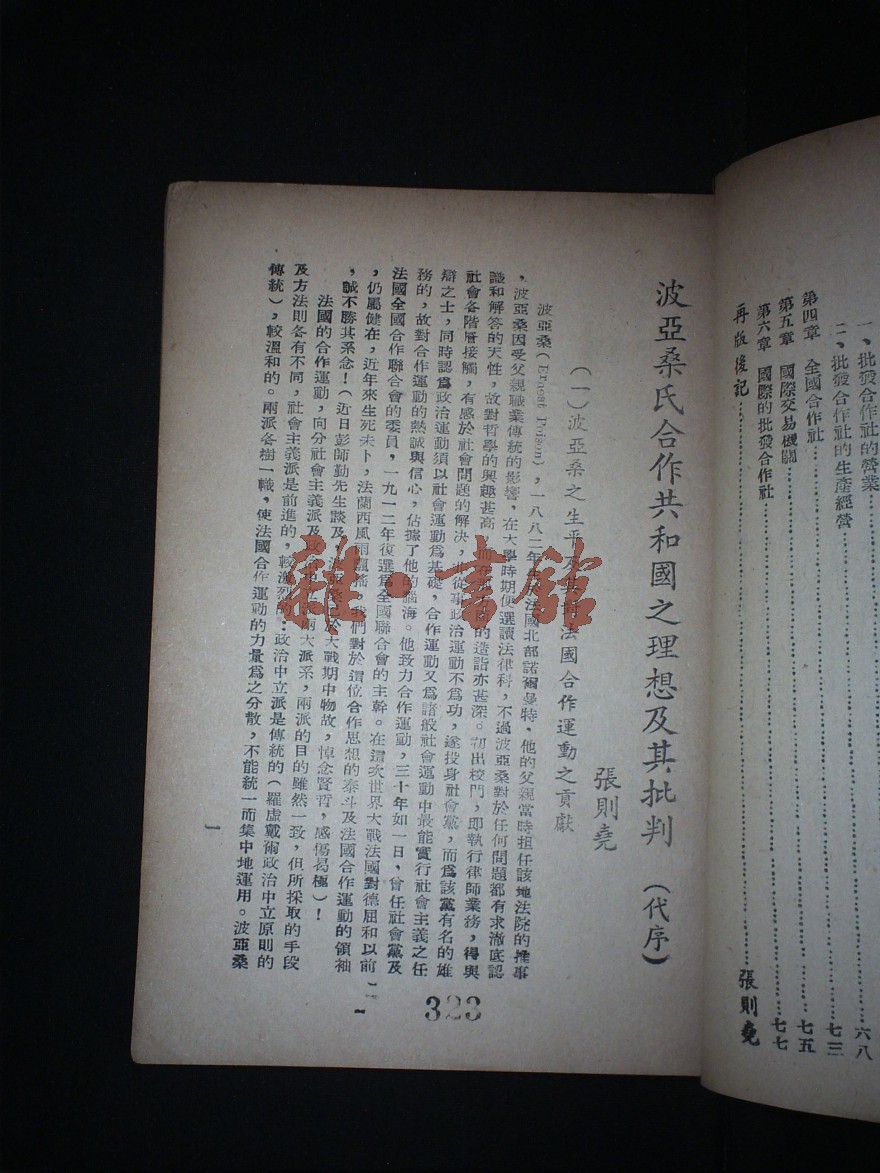 一、批發合作社的營業……六八
二、批發合作社的生產經營……七三
第四章 全國合作社……七五
第五章 國際交易機關……七七
第六章 國際的批發合作社
再版後記……張則堯
波亞桑氏合作共和國之理想及其批判 (代序)
張則堯
(一)波亞桑之生平及其對法國合作運動之貢獻
波亞桑(Ernost Poison),一八八二年生於法國北部諾爾曼特,他的父親當時担任該地法院的推事
,波亞桑因受父親職業傳統的影響,在大學時期便選讀法律科,不過波亞桑對於任何問題都有求澈底認
識和解答的天性,故對哲學的興趣甚高,而在這方面的造詣亦甚深。初出校門,即執行律師業務,得與
社會各階層接觸,有感於社會問題的解決,非從事政治運動不爲功,遂投身社會黨,而爲該黨有名的雄
辯之士,同時認爲政治運動須以社會運動爲基礎,合作運動又爲諸般社會運動中最能實行社會主義之任
務的,故對合作運動的熱誠與信心,佔據了他的腦海。他致力合作運動,三十年如一日,曾任社會黨及
法國全國合作聯合會的委員,一九一二年復選爲全國聯合會的主幹。在這次世界大戰法國對德屈和以前
,仍屬健在,近年來生死未卜,法蘭西風雨飄搖,我們對於這位合作思想的泰斗及法國合作運動的領袖
,誠不勝其系念!(近日彭師勤先生談及,波亞桑已於大戰期中物故,悼念賢哲,感傷曷極)!
法國的合作運動,向分社會主義派及政治中立派兩大派系,兩派的目的雖然一致,但所採取的手段
及方法則各有不同,社會主義派是前進的,較激烈的;政治中立派是傳統的(羅虛戴爾政治中立原則的
傳統),較溫和的。兩派各樹一幟,使法國合作運動的力量爲之分散,不能統一而集中地運用。波亞桑
一
323
雜·書館